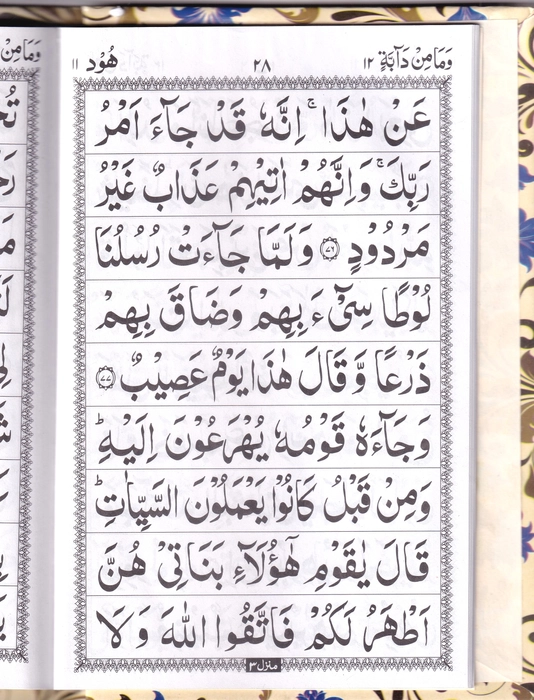 وَمَا مِنْ دَآبَّةٍ ١٢
٢٨
هُوْد ١١
عَنْ هٰذَا ۚ اِنَّهٗ قَدْ جَآءَ اَمْرُ
رَبِّكَ ۚ وَاِنَّهُمْ اٰتِيْهِمْ عَذَابٌ غَيْرُ
مَرْدُوْدٍ ﴿٧٦﴾ وَلَمَّا جَآءَتْ رُسُلُنَا
لُوْطًا سِيْٓءَ بِهِمْ وَضَاقَ بِهِمْ
ذَرْعًا وَّقَالَ هٰذَا يَوْمٌ عَصِيْبٌ ﴿٧٧﴾
وَجَآءَهٗ قَوْمُهٗ يُهْرَعُوْنَ اِلَيْهِ ؕ
وَمِنْ قَبْلُ كَانُوْا يَعْمَلُوْنَ السَّيِّاٰتِ ؕ
قَالَ يٰقَوْمِ هٰٓؤُلَآءِ بَنَاتِيْ هُنَّ
اَطْهَرُ لَكُمْ فَاتَّقُوا اللّٰهَ وَلَا
منزل ٣